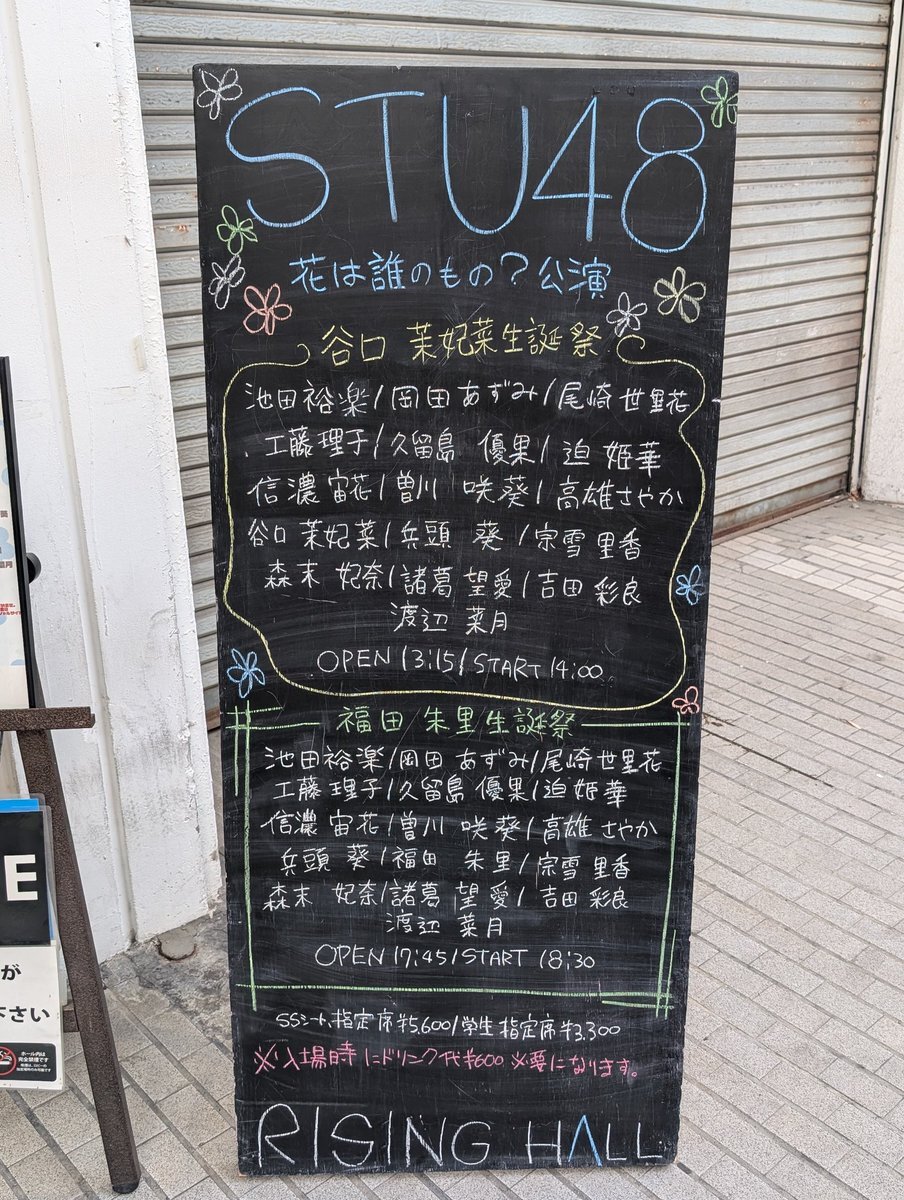 STU48
花は誰のもの?公演
谷口 茉妃菜生誕祭
池田裕楽/岡田あずみ/尾崎世里花
工藤理子/久留島 優果/迫姫華
信濃宙花/曽川 咲葵/高雄さやか
谷口茉妃菜/兵頭 葵/宗雪里香
森末妃奈/諸葛望愛/吉田彩良
渡辺菜月
OPEN 13:15/START 14:00
福田 朱里生誕祭
池田裕楽/岡田あずみ/尾崎世里花
工藤理子/久留島優果/迫姫華
信濃宙花/曽川 咲葵/高雄さやか
兵頭葵/福田 朱里/宗雪里香
森末妃奈/諸葛望愛/吉田彩良
渡辺菜月
OPEN 17:45/START 18:30
SSシート、指定席¥5,600/学生指定席¥3,300
※入場時にドリンク代¥600 必要になります。
RISING HALL
E
が
下さい
ホール内は
完全禁煙です